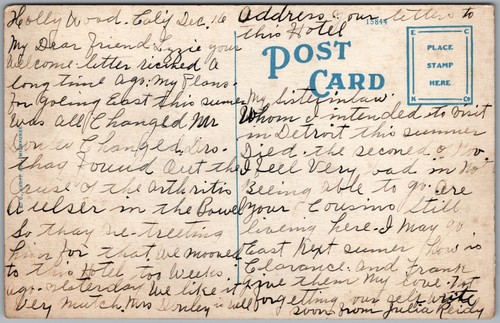 Holly Wood. Calif Dec. 16
My Dear Friend Lizzie your
welcome letter recieved a
long time ago. My Plans
for going East this sumer
was all Changed Mr
Changed Drs.
thay Found Out the
Cause of the arthritis
A ulser in the Bowel
So thay are treeting
him for that. We mooved
to this Hotel too Weeks
ago yesterday We like it
Very Mutch. Mrs is well
Address your letters to
this Hotel
15844
POST
CARD
E C
PLACE
STAMP
HERE
K Co
My sisterinlaw
Whom I intended to visit
in Detroit this summer
Died. the second of Nov.
I feel Very bad in not
Beeing able to go. are
your Cousins Still
liveing here. I May go
East Next sumer how is
Clarance. and Frank
give them My love. Not
forgetting our self write
soon from Julia Reidy